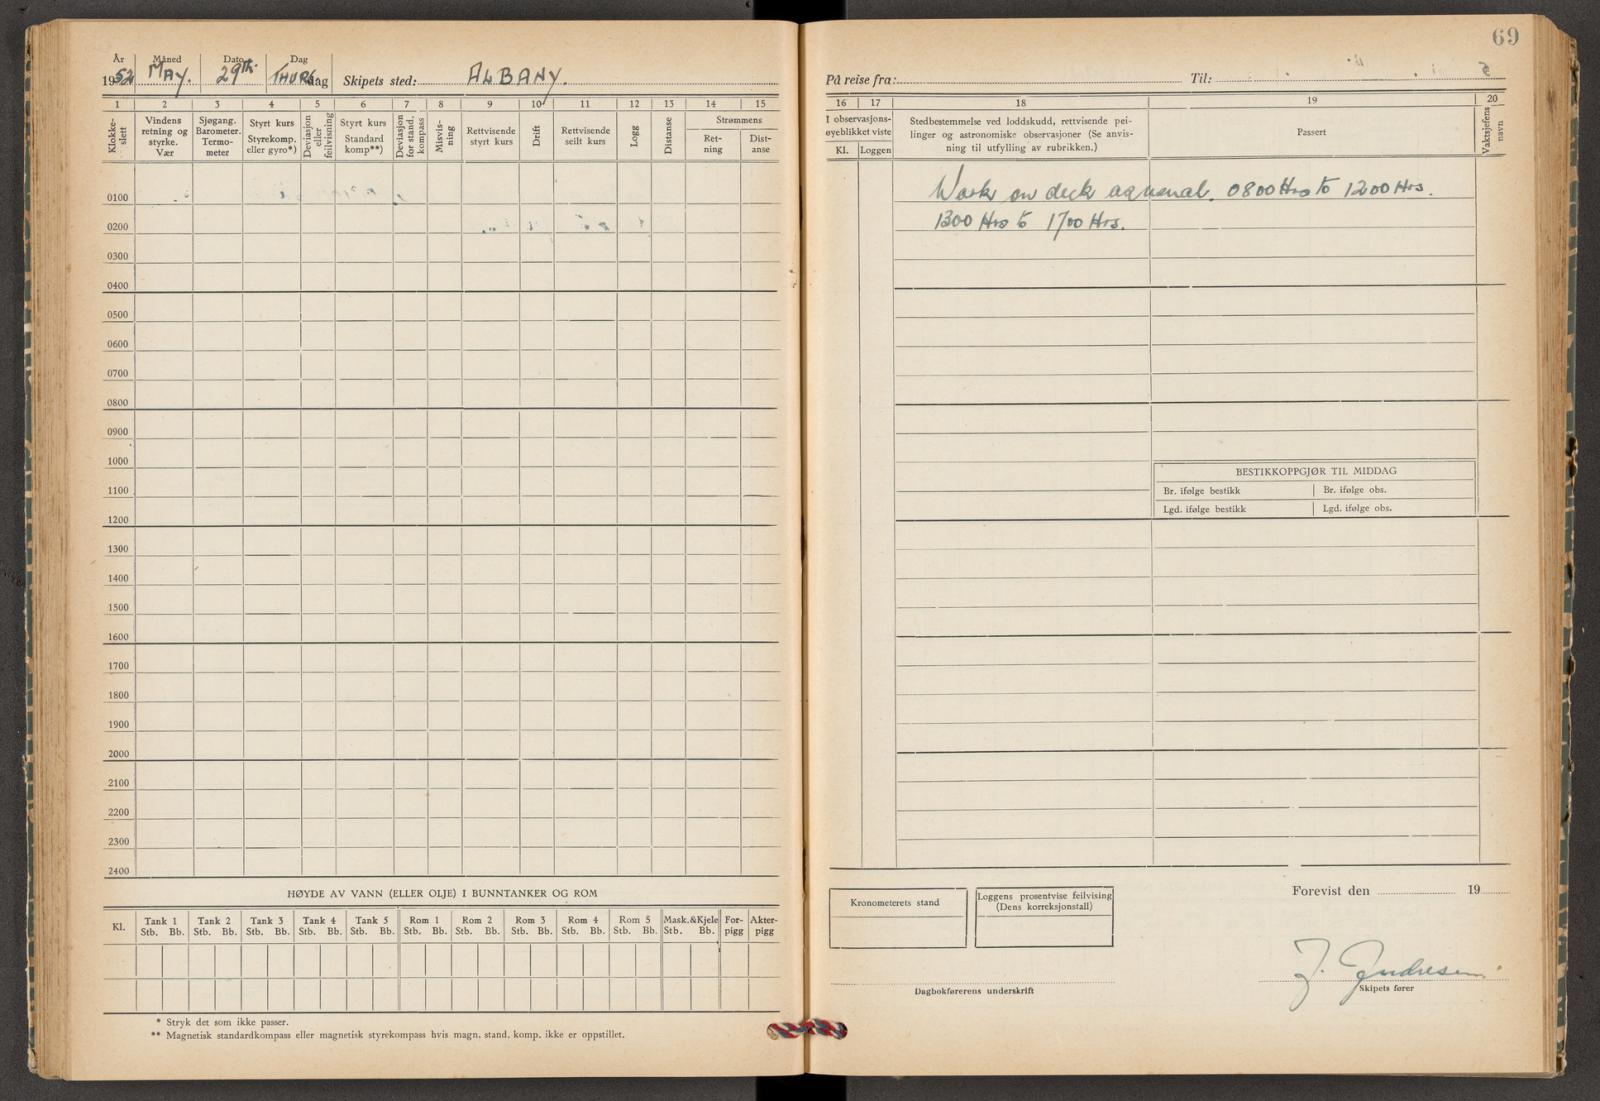 69
År Måned Dato Dag
1952 MAY. 29th. THURS.dag Skipets sted: ALBANY.
På reise fra: Til:
1 2 3 4 5 6 7 8 9 10 11 12 13 14 15
Klokkeslett
Vindens retning og styrke. Vær
Sjøgang. Barometer. Termometer
Styrt kurs Styrekomp. eller gyro*)
Deviasjon eller feilvisning
Styrt kurs Standard komp**)
Deviasjon for stand. kompass
Misvisning
Rettvisende styrt kurs
Drift
Rettvisende seilt kurs
Logg
Distanse
Strømmens
Retning
Distanse
16 17 18 19 20
I observasjonsøyeblikket viste
Kl. Loggen
Stedbestemmelse ved loddskudd, rettvisende peilinger og astronomiske observasjoner (Se anvisning til utfylling av rubrikken.)
Passert
Vaktsjefens navn
0100
0200
0300
0400
0500
0600
0700
0800
0900
1000
1100
1200
1300
1400
1500
1600
1700
1800
1900
2000
2100
2200
2300
2400
Work on deck as usual. 0800 Hrs to 1200 Hrs.
1300 Hrs to 1700 Hrs.
BESTIKKOPPGJØR TIL MIDDAG
Br. ifølge bestikk Br. ifølge obs.
Lgd. ifølge bestikk Lgd. ifølge obs.
HØYDE AV VANN (ELLER OLJE) I BUNNTANKER OG ROM
Kl. Tank 1 Tank 2 Tank 3 Tank 4 Tank 5 Rom 1 Rom 2 Rom 3 Rom 4 Rom 5 Mask.&Kjele For-pigg Akter-pigg
Stb. Bb. Stb. Bb. Stb. Bb. Stb. Bb. Stb. Bb. Stb. Bb. Stb. Bb. Stb. Bb. Stb. Bb. Stb. Bb. Stb. Bb.
* Stryk det som ikke passer.
** Magnetisk standardkompass eller magnetisk styrekompass hvis magn. stand. komp. ikke er oppstillet.
Kronometerets stand
Loggens prosentvise feilvising
(Dens korreksjonstall)
Forevist den 19
Dagbokførerens underskrift
J. Andresen.
Skipets fører